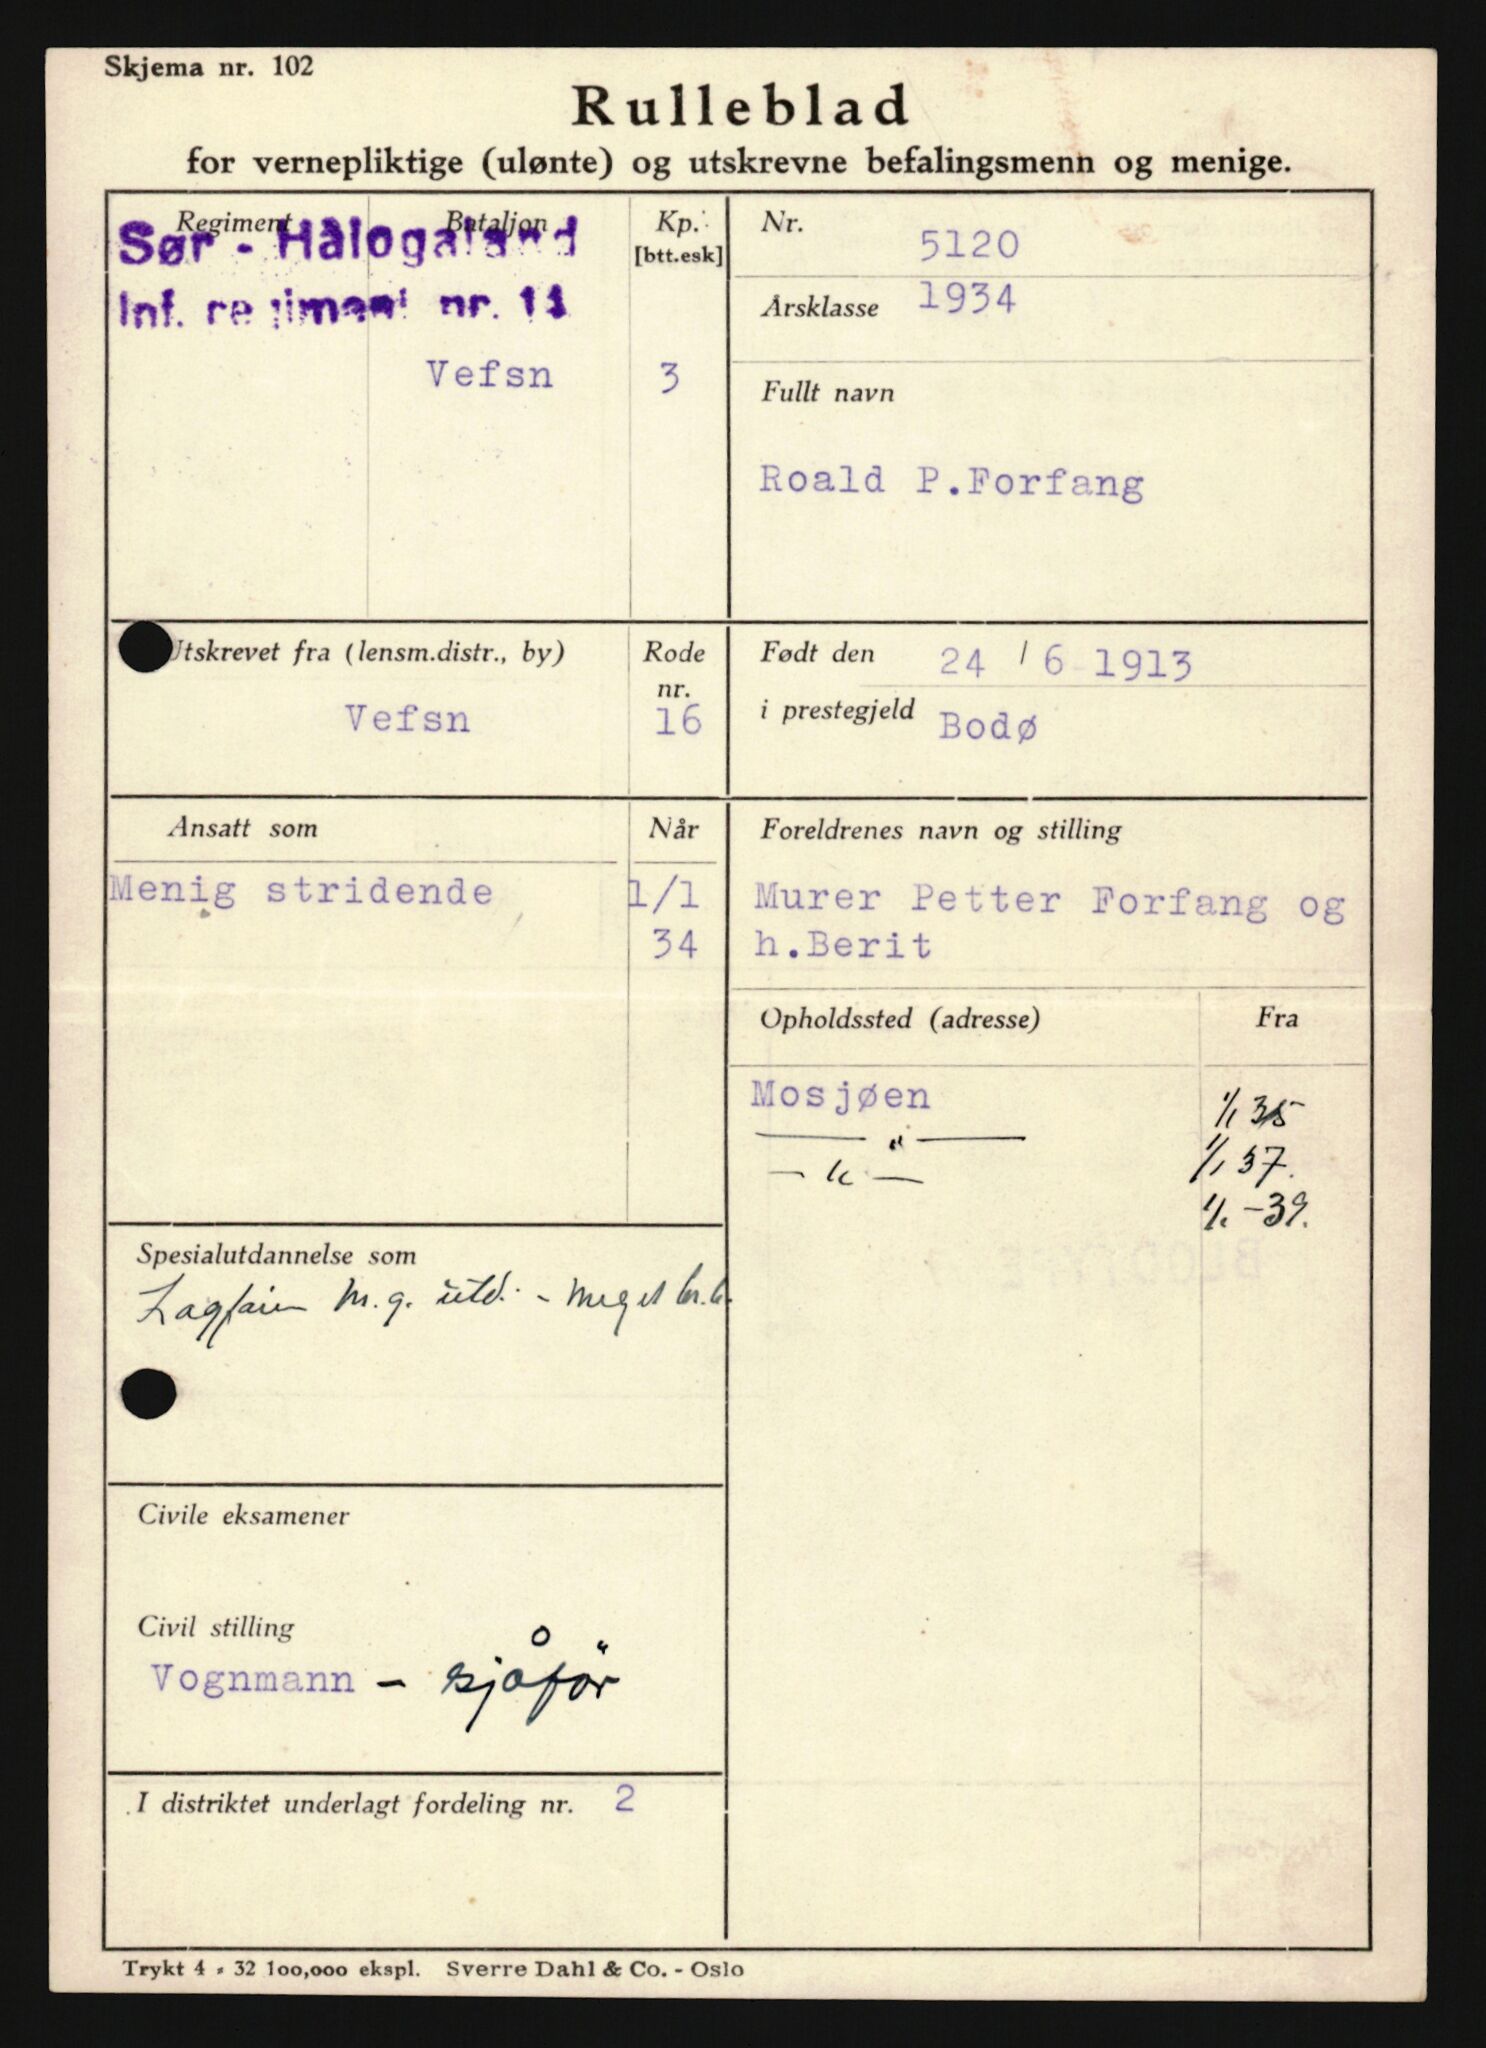 Skjema nr. 102
Rulleblad
for vernepliktige (ulønte) og utskrevne befalingsmenn og menige.
Regiment
Bataljon
Kp.
[btt.esk]
Sør - Hålogaland
Inf. regiment nr. 14
Vefsn
3
Nr. 5120
Årsklasse 1934
Fullt navn
Roald P.Forfang
Utskrevet fra (lensm.distr., by)
Vefsn
Rode
nr.
16
Født den 24 / 6 1913
i prestegjeld Bodø
Ansatt som
Når
Menig stridende 1/1
34
Foreldrenes navn og stilling
Murer Petter Forfang og
h.Berit
Opholdssted (adresse)
Fra
Mosjøen 1/1 35
— " — 1/1 37.
— " — 1/1 -39.
Spesialutdannelse som
M.g. utd. - meget
Civile eksamener
Civil stilling
Vognmann - sjåför
I distriktet underlagt fordeling nr. 2
Trykt 4 - 32 100,000 ekspl. Sverre Dahl & Co. - Oslo